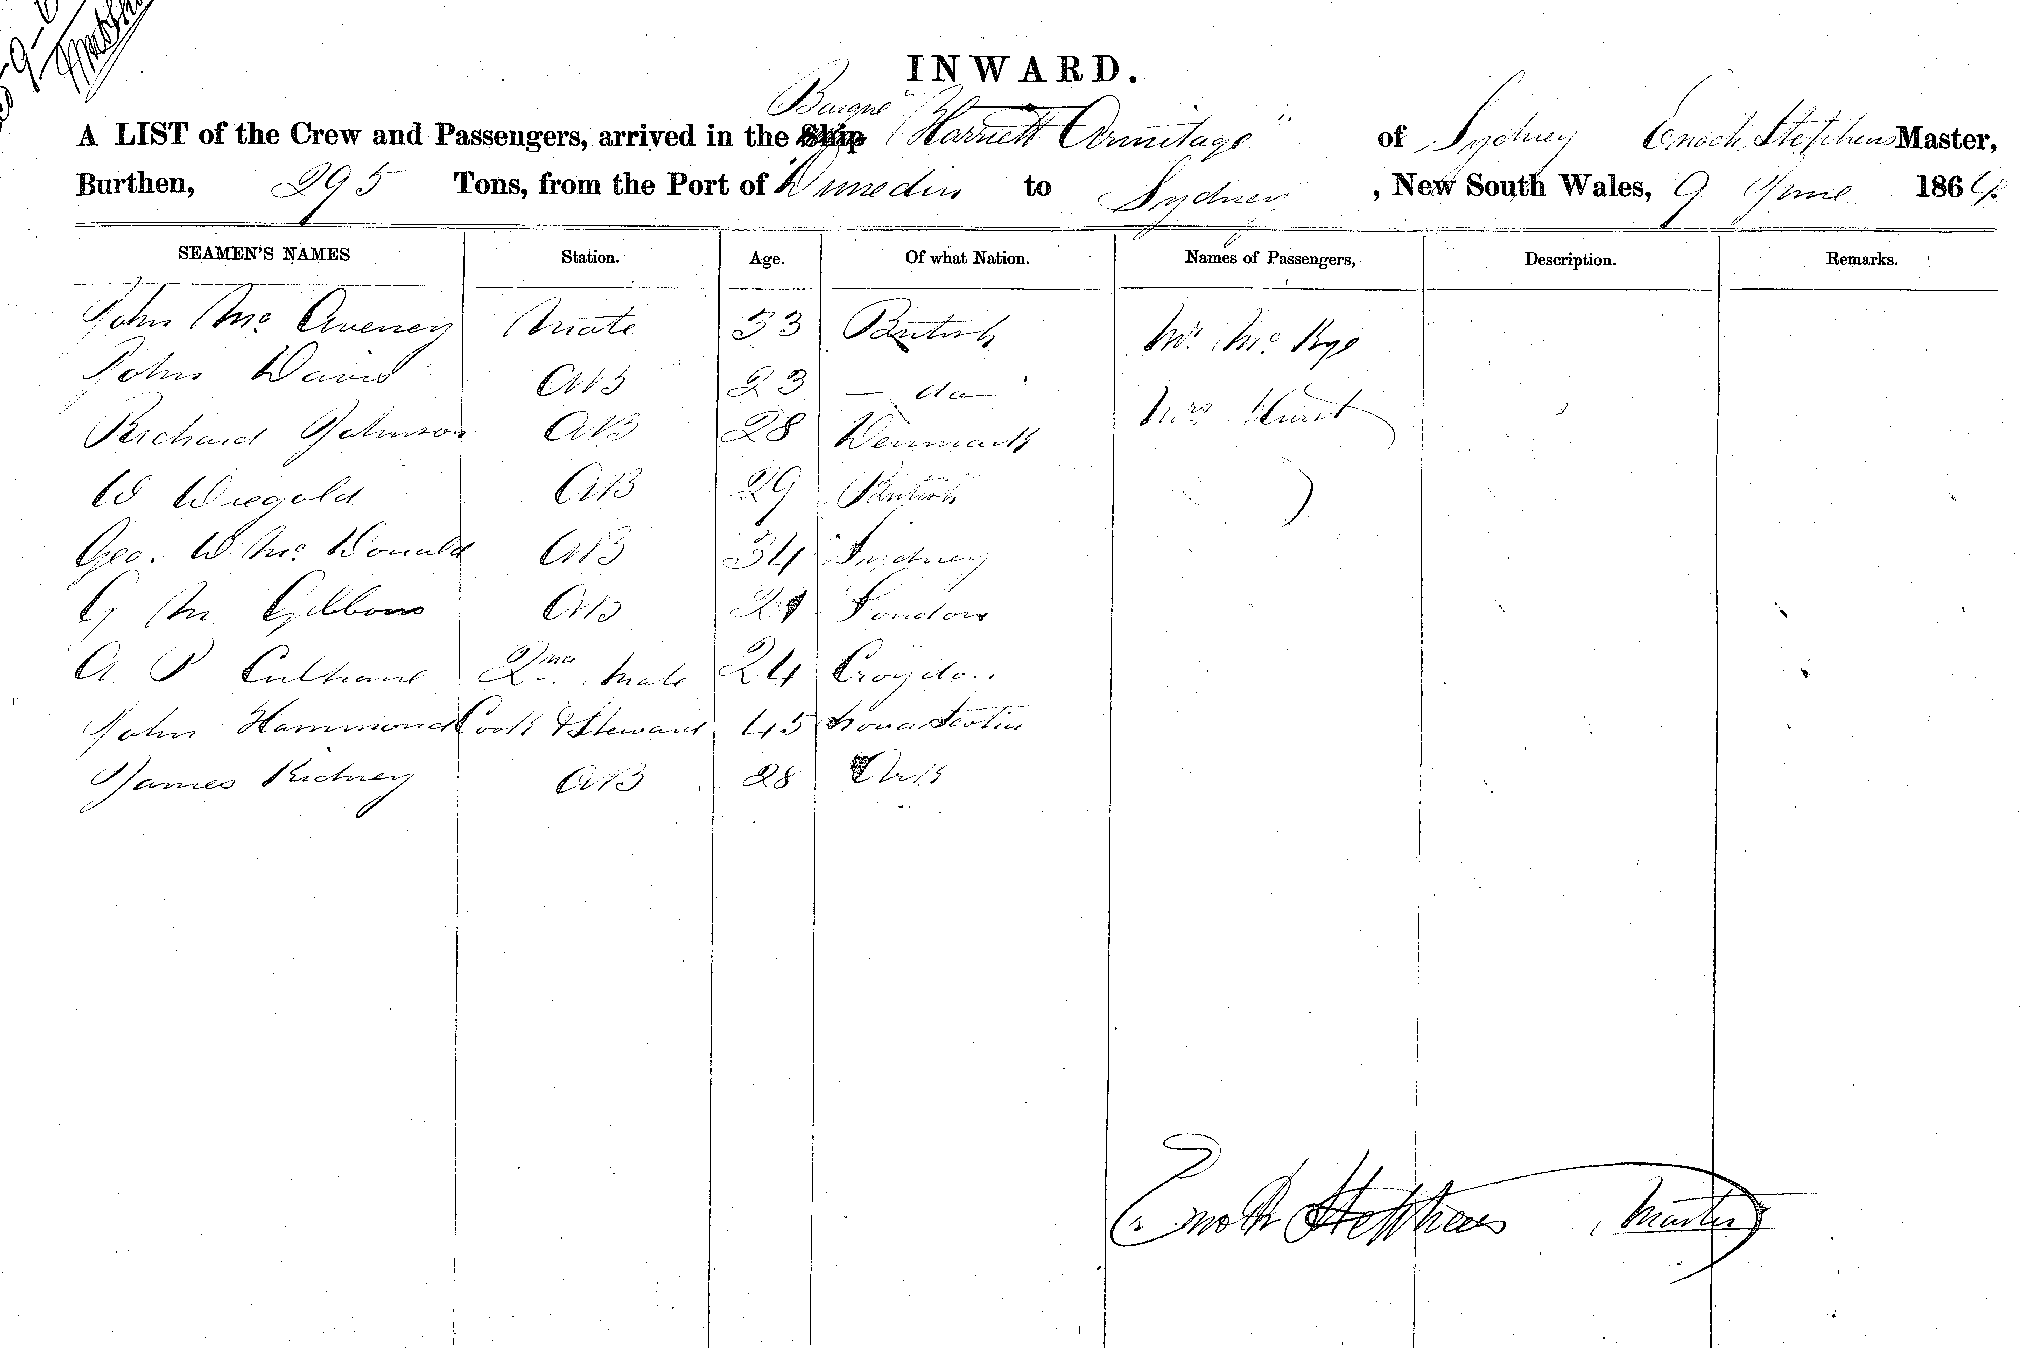 INWARD.
Barque
A LIST of the Crew and Passengers, arrived in the Ship "Harriett Armitage" of Sydney Enoch Stephens Master,
Burthen, 295 Tons, from the Port of Dunedin to Sydney, New South Wales, 9 June 1864
SEAMEN'S NAMES Station. Age. Of what Nation. Names of Passengers, Description. Remarks.
John Mc Aveney Mate 33 British Mr. Mc Kye
John Davis AB 23 — do — Mrs Hurst
Richard Johnson AB 28 Denmark
W Wiegold AB 29 British
Geo. W. Mc Donald AB 34 Sydney
G M Gibbons AB 21 London
A. P Culhane 2nd Mate 24 Croydon
John Hammond Cook & Steward 45 Nova Scotia
James Kidney AB 28 Cork
Enoch Stephens Master